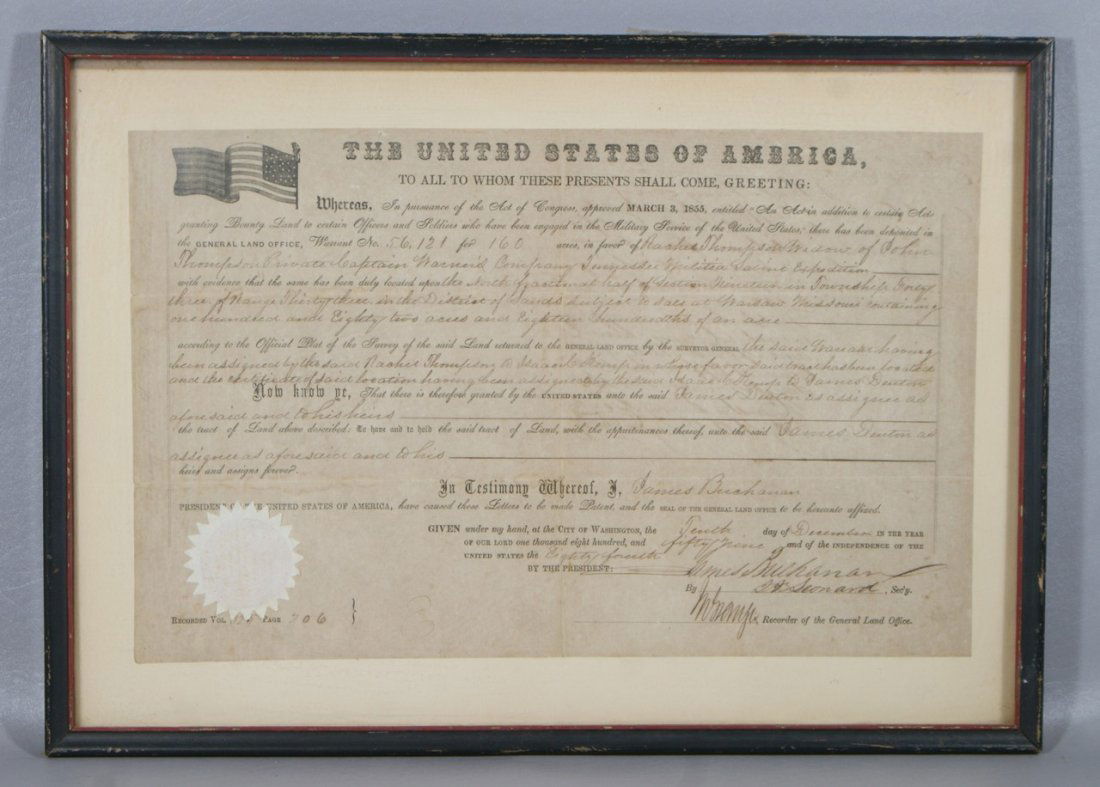 THE UNITED STATES OF AMERICA,
TO ALL TO WHOM THESE PRESENTS SHALL COME, GREETING:
Whereas, In pursuance of the Act of Congress, approved MARCH 3, 1855, entitled "An Act in addition to certain Acts
granting Bounty Land to certain Officers and Soldiers who have been engaged in the Military Service of the United States," there has been deposited in
the GENERAL LAND OFFICE, Warrant No. 56,121 for 160 acres, in favor of Rachel Thompson Widow of John
Thompson Private Captain Company Tennessee Militia Expedition
with evidence that the same has been duly located upon the North fractional half of Section Nineteen in Township Forty
three of Range Thirty three in the District of Lands Subject to Sale at Warsaw Missouri containing
one hundred and Eighty two acres and Eighteen hundredths of an acre
according to the Official Plat of the Survey of the said Land returned to the GENERAL LAND OFFICE by the SURVEYOR GENERAL the said Warrant having
been assigned by the said Rachel Thompson to Isaac in whose favor said tract has been located
and the certificate of said location having been assigned by the said Isaac to James Denton
Now know ye, That there is therefore granted by the UNITED STATES unto the said James Denton as assignee as
aforesaid and to his heirs
the tract of Land above described: To have and to hold the said tract of Land, with the appurtenances thereof, unto the said James Denton as
assignee as aforesaid and to his
heirs and assigns forever.
In Testimony Whereof, I, James Buchanan
PRESIDENT OF THE UNITED STATES OF AMERICA, have caused these Letters to be made Patent, and the SEAL OF THE GENERAL LAND OFFICE to be hereunto affixed.
GIVEN under my hand, at the CITY OF WASHINGTON, the Tenth day of December IN THE YEAR
OF OUR LORD one thousand eight hundred, and fifty nine and of the INDEPENDENCE OF THE
UNITED STATES the Eighty fourth
BY THE PRESIDENT: James Buchanan
By Leonard, Sec'y.
Recorder of the General Land Office.
RECORDED VOL. PAGE 706